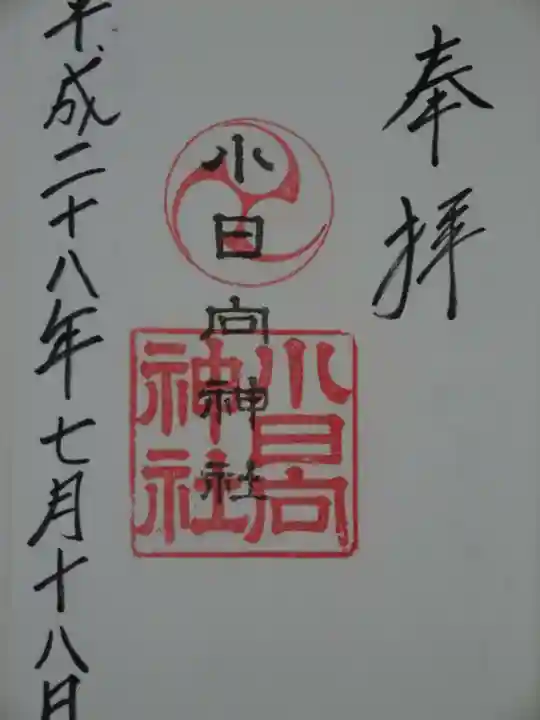 奉拝
小日向神社
小日向
神社
平成二十八年七月十八日